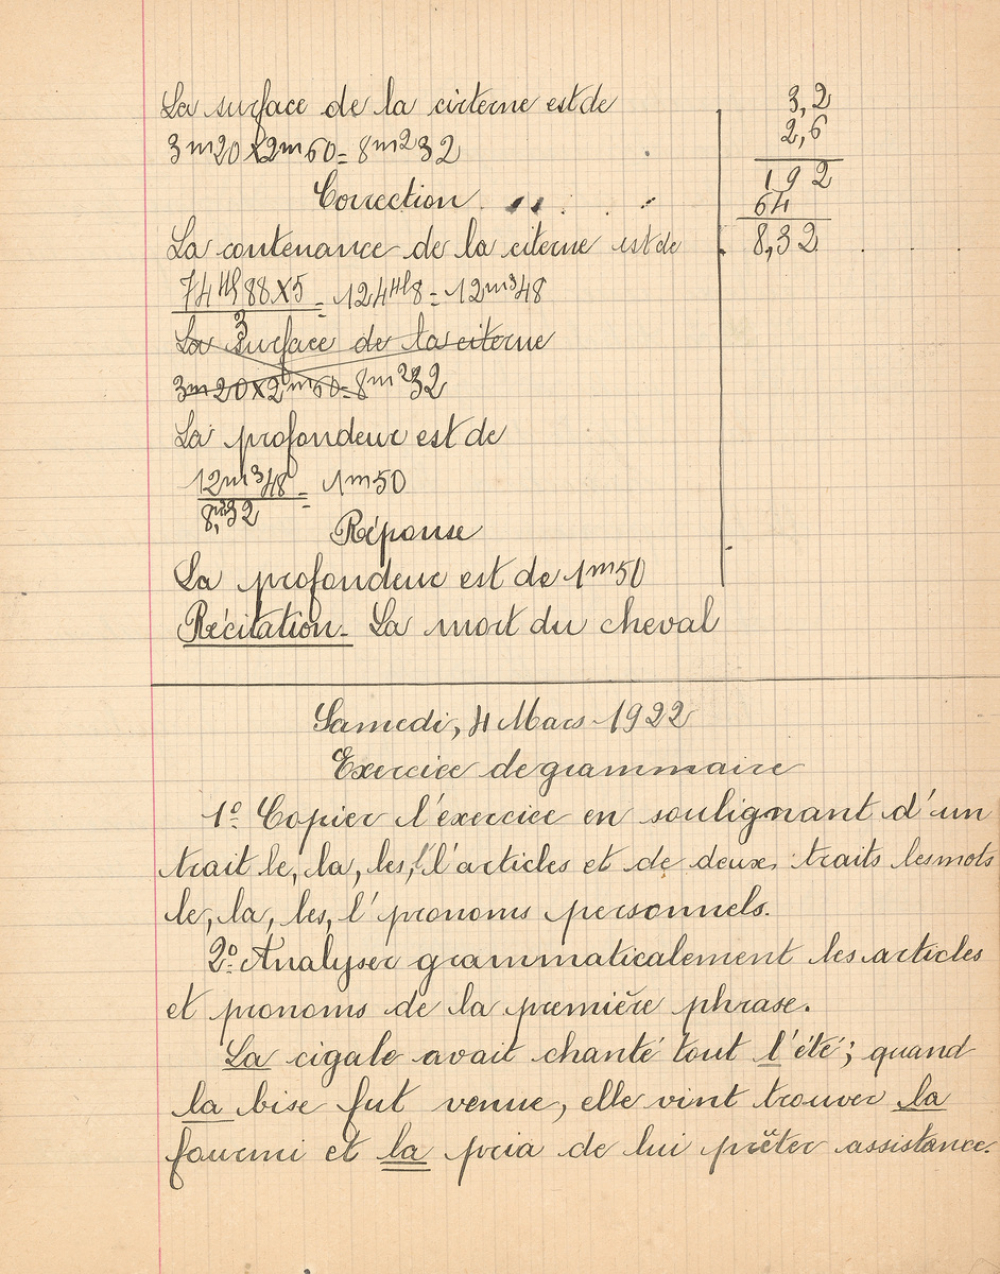 La surface de la cirterne est de
3m20 x 2m60 = 8m²32
3,2
2,6
192
64
8,32
Correction
La contenance de la citerne est de
74Hl88 X 5 / 3 = 124Hl8 = 12m³48
La Surface de la citerne
3m20 X 2m60 = 8m²32
La profondeur est de
12m³48 / 8,m²32 = 1m50
Réponse
La profondeur est de 1m50
Récitation - La mort du cheval
Samedi, 4 Mars 1922
Exercice de grammaire
1º: Copier l'exercice en soulignant d'un
trait le, la, les, l' articles et de deux traits les mots
le, la, les, l' pronoms personnels.
2º: Analyser grammaticalement les articles
et pronoms de la première phrase.
La cigale avait chanté tout l'été; quand
la bise fut venue, elle vint trouver la
fourmi et la pria de lui prêter assistance.